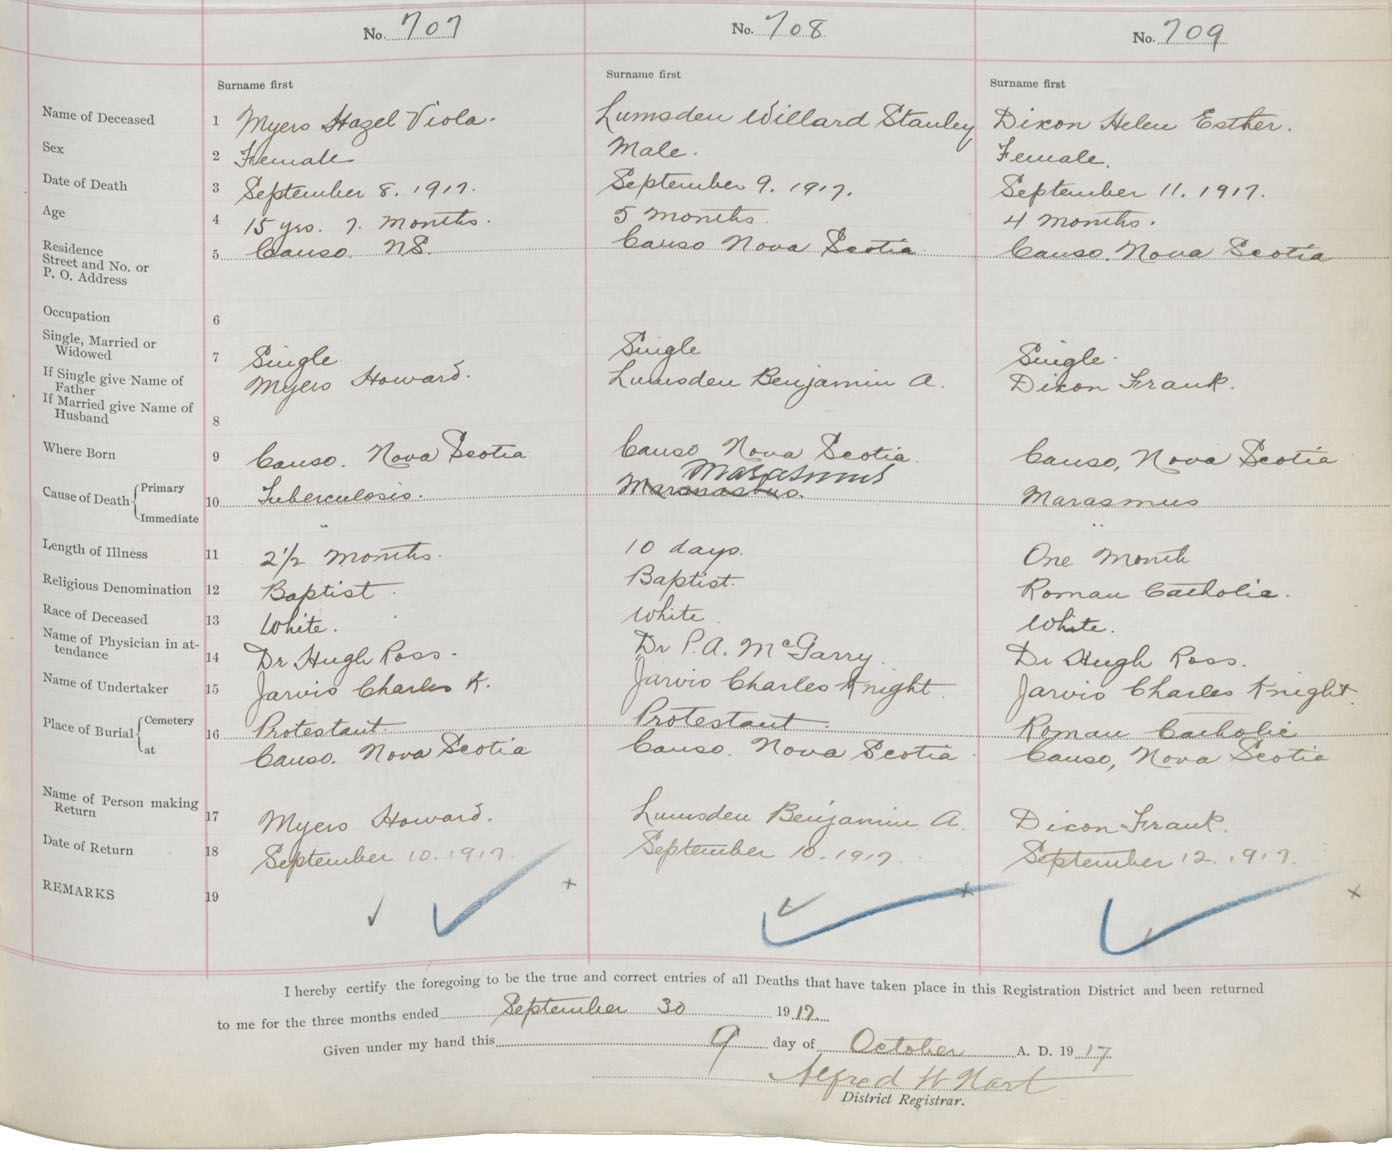 No. 707 No. 708 No. 709
Surname first Surname first Surname first
Name of Deceased 1 Myers Hazel Viola. Lumsden Willard Stanley Dixon Helen Esther.
Sex 2 Female Male. Female.
Date of Death 3 September 8. 1917. September 9. 1917. September 11. 1917.
Age 4 15 yrs. 7. Months. 5 months. 4 months.
Residence
Street and No. or
P. O. Address
5 Canso. N.S. Canso Nova Scotia Canso. Nova Scotia
Occupation 6
Single, Married or
Widowed
7 Single Single Single.
If Single give Name of
Father
Myers Howard. Lumsden Benjamin A. Dixon Frank.
If Married give Name of
Husband
8
Where Born 9 Canso. Nova Scotia Canso Nova Scotia. Canso, Nova Scotia
Marasmus
Cause of Death Primary 10 Tuberculosis. Marasmus
Immediate " "
Length of Illness 11 2 1/2 months. 10 days. One Month
Religious Denomination 12 Baptist. Baptist. Roman Catholic.
Race of Deceased 13 White. White. White.
Name of Physician in at-
tendance
14 Dr Hugh Ross. Dr P. A. McGarry. Dr Hugh Ross.
Name of Undertaker 15 Jarvis Charles K. Jarvis Charles Knight. Jarvis Charles Knight.
Place of Burial Cemetery 16 Protestant. Protestant. Roman Catholic
at Canso. Nova Scotia Canso. Nova Scotia. Canso, Nova Scotia
Name of Person making
Return
17 Myers Howard. Lumsden Benjamin A. Dixon Frank.
Date of Return 18 September 10. 1917. September 10. 1917. September 12. 1917.
REMARKS 19
I hereby certify the foregoing to be the true and correct entries of all Deaths that have taken place in this Registration District and been returned
to me for the three months ended September 30 1917.
Given under my hand this 9 day of October A. D. 1917
Alfred W Hart
District Registrar.